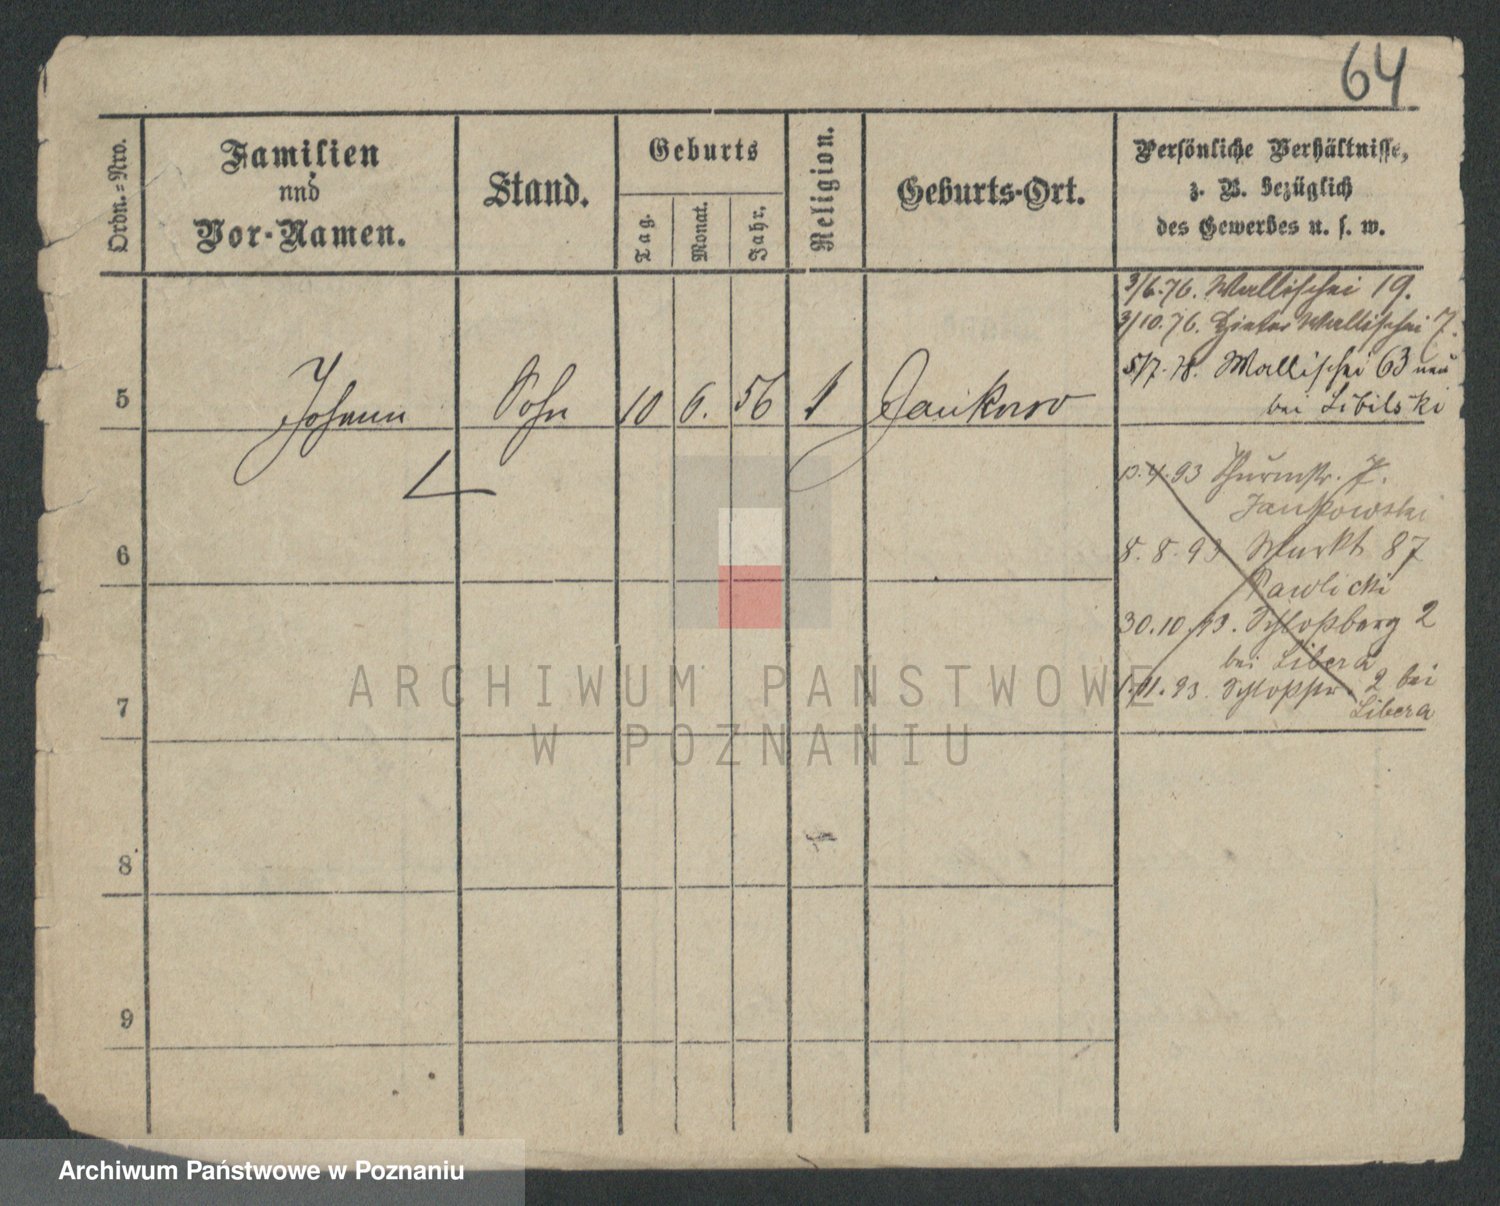 64
Ordn.=Nro.
Familien
und
Vor-Namen.
Stand.
Geburts
Tag.
Monat.
Jahr.
Religion.
Geburts-Ort.
Persönliche Verhältnisse,
z. B. bezüglich
des Gewerbes u. s. w.
3/6.76. Wallischei 19.
3/10.76. Hinter Wallischei 7.
5/7.78. Wallischei 63 neu
bei Libilski
5 Johann Sohn 10 6. 56 Jankowo
4.93 Thurmstr. 7.
Jankowski
8.8.93 Markt 87
Pawlicki
30.10.93. Schloßberg 2
bei Libera
1.11.93. Schloßstr. 2 bei
Libera
6
7
8
9
ARCHIWUM PAŃSTWOWE
W POZNANIU
Archiwum Państwowe w Poznaniu